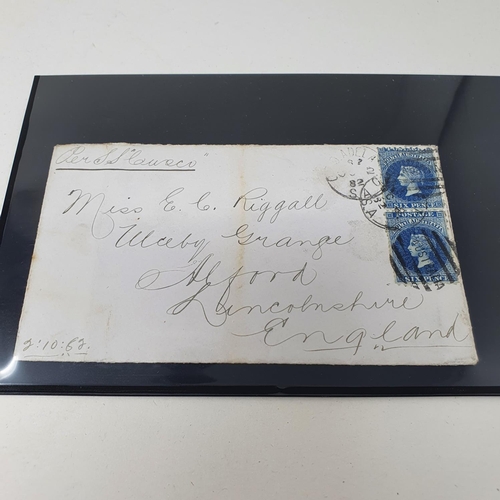 Per S.S. "Cuzco"
Miss E. C. Riggall
Ulceby Grange
Alford
Lincolnshire
England
2:10:82.
SOUTH AUSTRALIA
SIX PENCE
POSTAGE
SOUTH AUSTRALIA
SIX PENCE